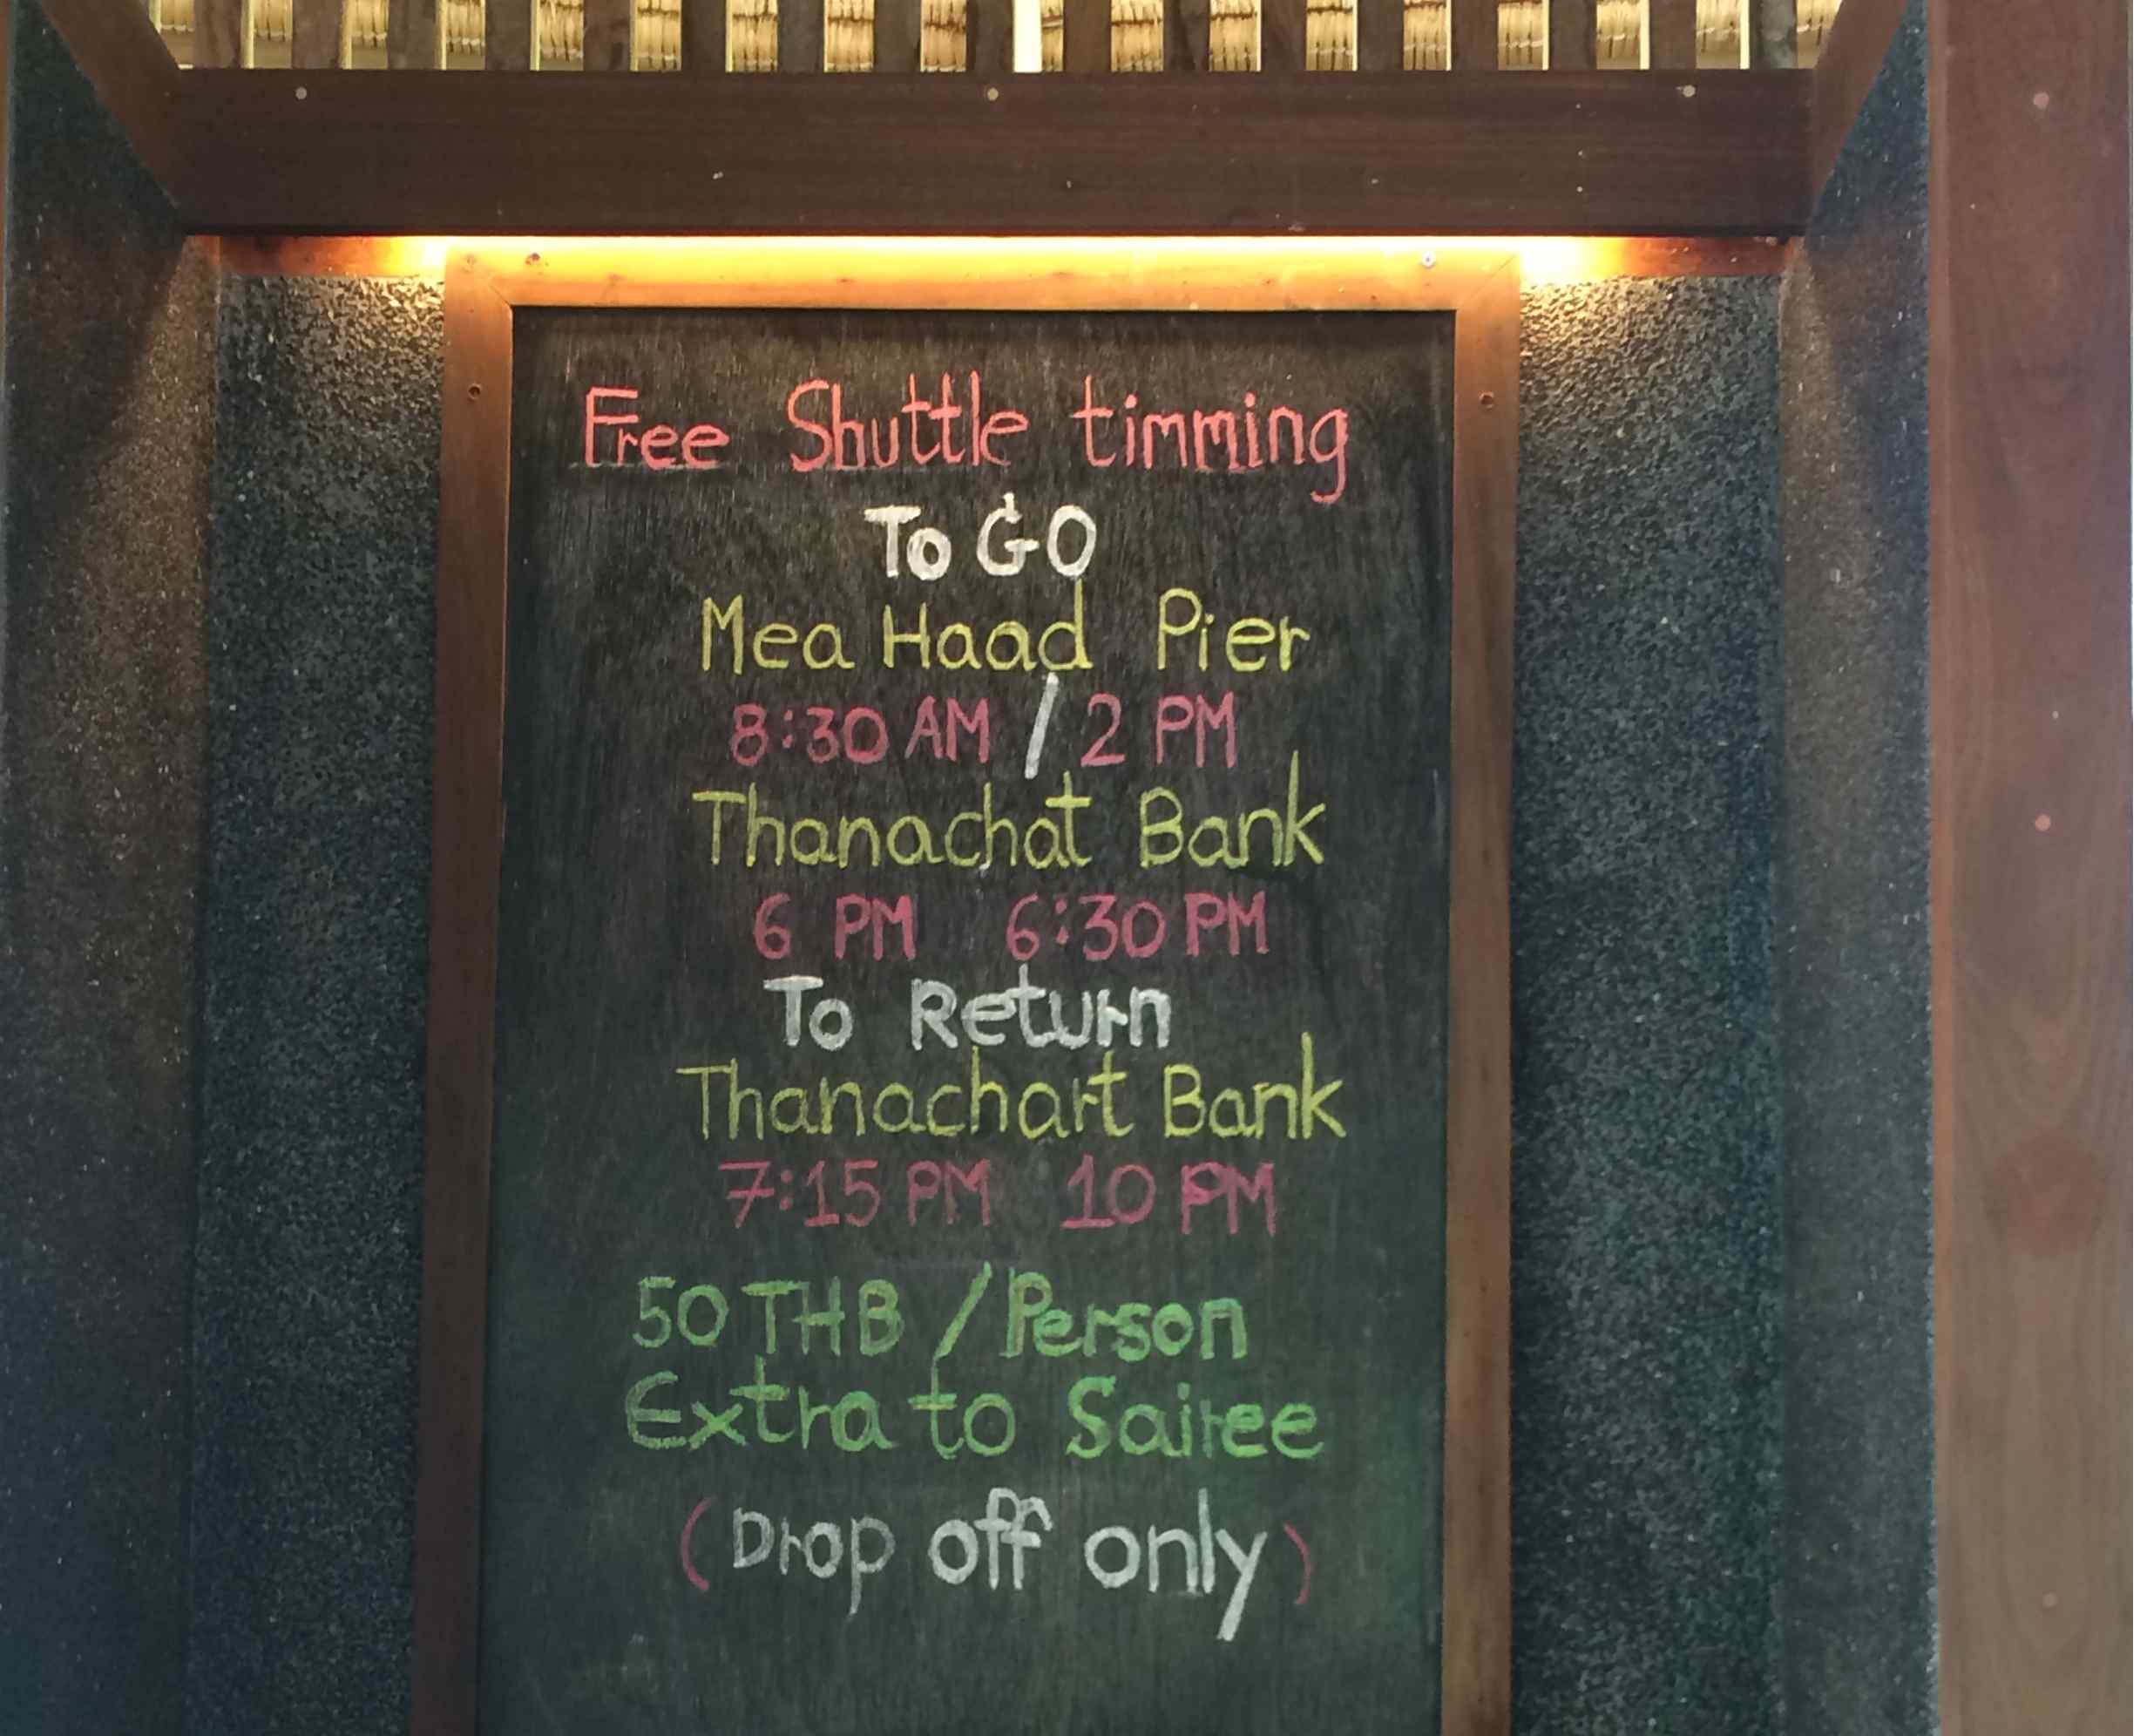 Free Shuttle timming
To GO
Mea Haad Pier
8:30 AM / 2 PM
Thanachat Bank
6 PM 6:30 PM
To Return
Thanachart Bank
7:15 PM 10 PM
50 THB / Person
Extra to Sairee
(Drop off only)